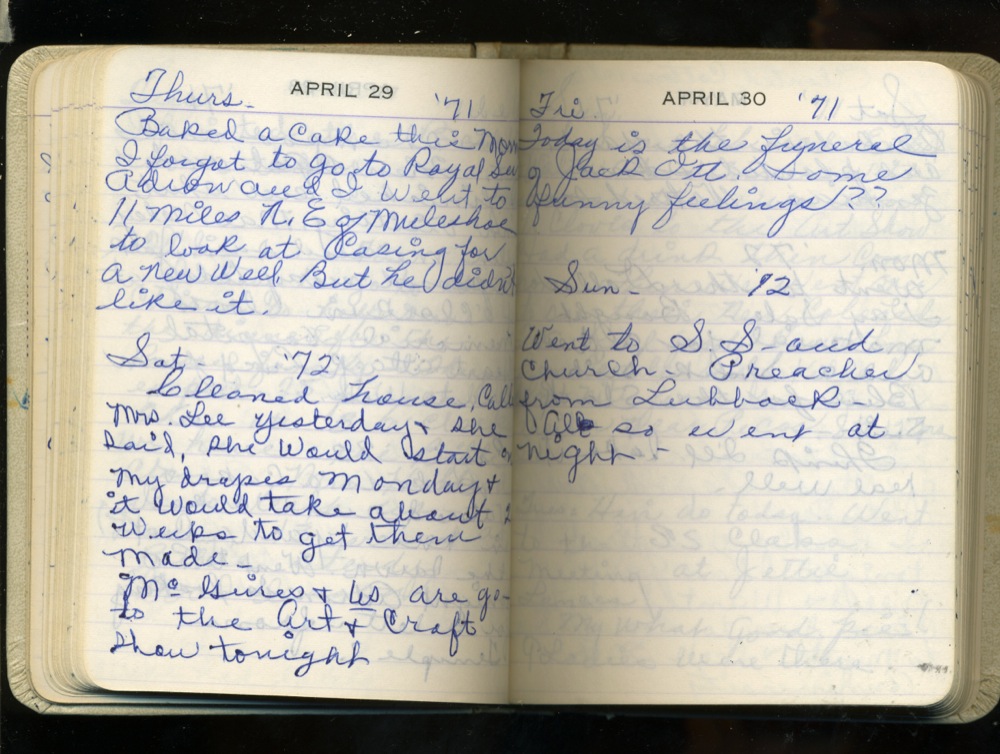 APRIL 29
Thurs. '71
Baked a Cake this Mon
I forgot to go to Royal Se
and I Went to
11 Miles N. E of Muleshoe
to look at Casing for
a new Well. But he didn't
like it.
Sat. '72
Cleaned house, Call
Mrs. Lee yesterday & she
said, she Would start
my drapes Monday &
it Would take about 2
Weeks to get them
Made -
Mc Guires & us are go-
to the Art & Craft
Show tonight
APRIL 30
Fri. '71
Today is the funeral
of Jack Ott. Some
funny feelings??
Sun - '72
Went to S. S - and
Church - Preacher
from Lubbock -
Al so went at
night -